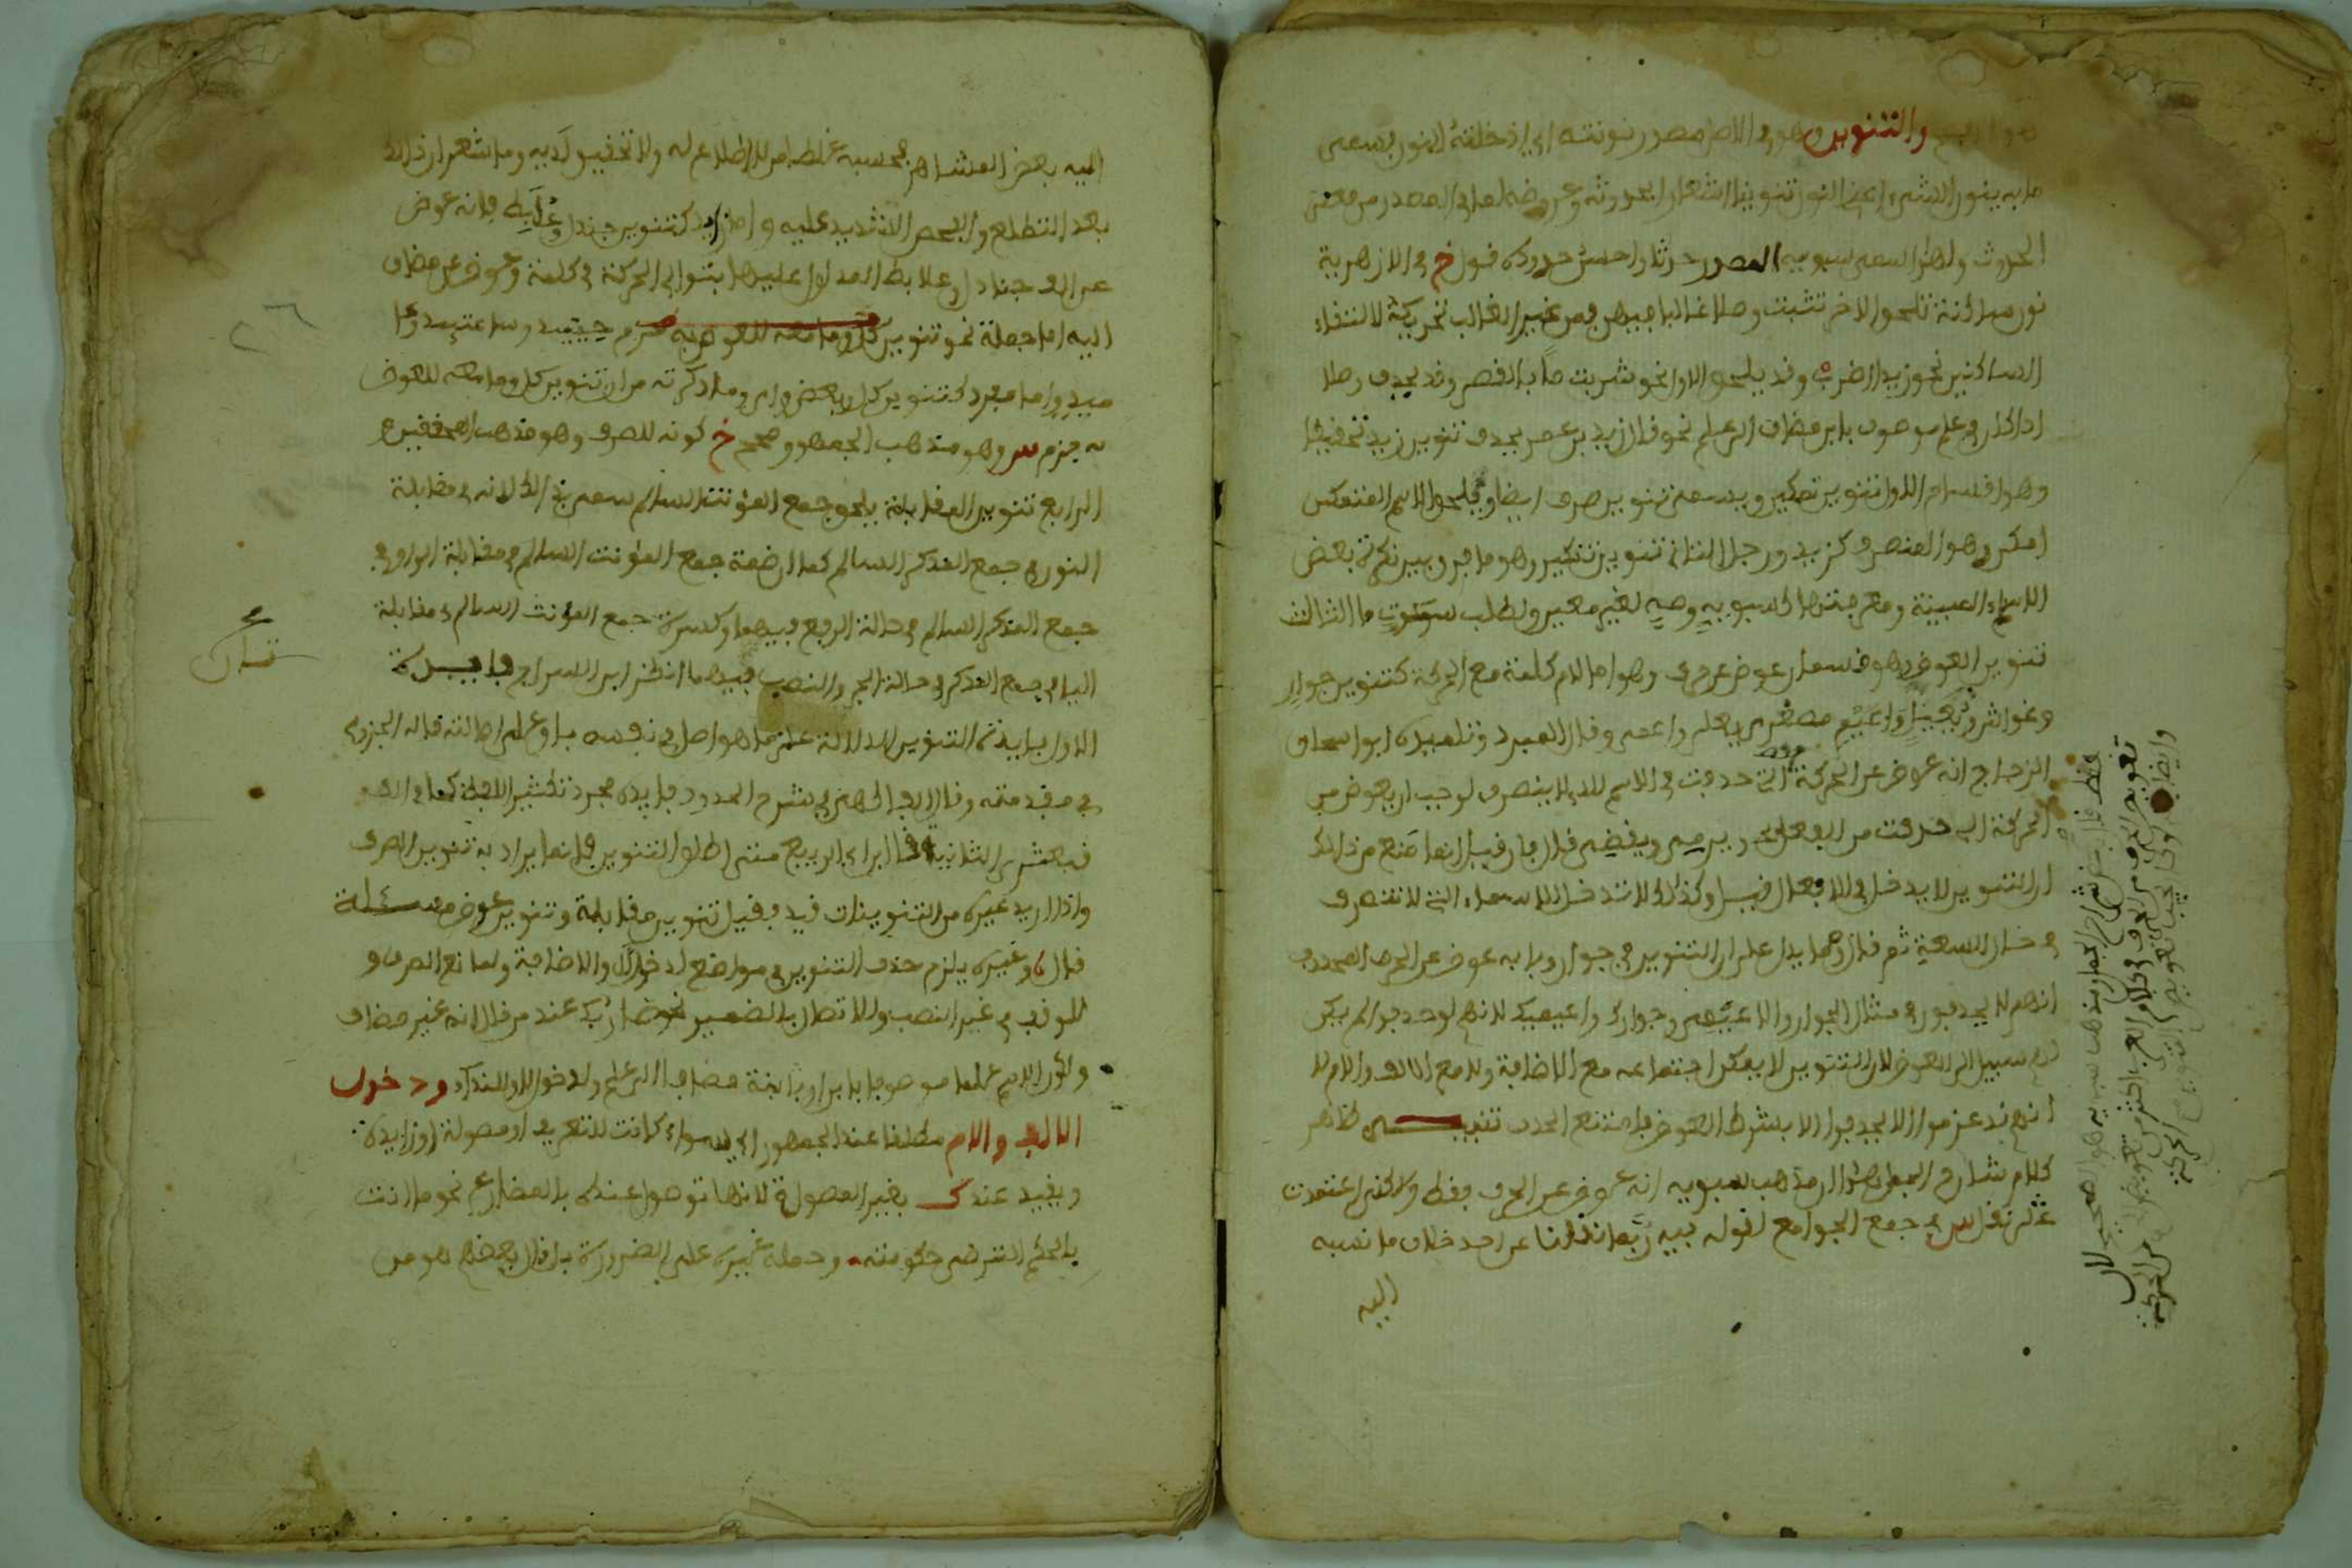 والتنوين وهو في الاصل مصدر نونته اي ادخلته النون بسمى
ما به ينون الاسم اعني النون تنوينا اشعارا بحدوثه وعروضه لما في المصدر من معنى
الحدوث ولهذا سمى سيبويه المصدر حدثا واحسن حدوده قول خ في الازهرية
نون ساكنة تلحق الاخر تثبت وصلا غالبا فيهن ومن غير الغالب تحريكه لالتقاء
الساكنين نحو زيد اضرب وقد يلحق الاول نحو شربت ما بالقصر وقد يحذف وصلا
اذا كان في علم موصوف بابن مضاف الى علم نحو قال زيد بن عمر بحذف تنوين زيد تخفيفا
وهو اقسام الاول تنوين تمكين ويسمى تنوين صرف ايضا ويلحق الاسم المتمكن
امكن وهو المنصرف كزيد ورجل الثاني تنوين تنكير وهو ما فرق بين نكرة بعض
الاسماء المبنية ومعرفتها كسيبويه وصه لغير معين ولطلب سكوت ما الثالث
تنوين العوض وهو قسمان عوض عن حرف وهو اما لام كلمة مع الحركة كتنوين جوار
وغواش ويعيل واعيم مصغري يعلى واعمى وقال المبرد وتلميذه ابو اسحاق
الزجاج انه عوض عن الحركة التي حذفت في الاسم الذي لا ينصرف لوجب ان يعوض من
الحركة التي حذفت من الفعل نحو يرمي ويقضي قال فان قيل انما منع من ذلك
ان التنوين لا يدخل في الافعال قيل وكذلك لا تدخل الاسماء التي لا تنصرف
في حال السعة ثم قال ومما يدل على ان التنوين في جوار وبابه عوض عن الحرف المحذوف
انهم لا يحذفون في مثل الجوار والاعيمى وجوارك واعيميك لانهم لو حذفوا لم يكن
لهم سبيل الى العوض لان التنوين لا يمكن اجتماعه مع الاضافة ولا مع الالف واللام لا
انهم قد عزموا الا يحذفوا الا بشرط العوض فامتنع الحذف تنبيه ظاهر
كلام شارح الجمل هذا ان مذهب سيبويه انه عوض عن الحرف فقط ولاكن اعتمدت
على نقل س في جمع الجوامع لقوله فيه ربما نقلنا عن احد خلاف ما نسبه
اليه
فقط قال بعض شراح الجمل ومذهب سيبويه هو الصحيح لان
تعويض الحرف من الحرف في كلام العرب اكثر من تعويض الحرف من الحركة
وايضا
اليه بعض المشاهر فحسبه غلطا من لا اطلاع له ولا تحقيق لديه وما شعر ان ذلك
بعد التطلع والفحص الشديد عليه واما زايد كتنوين جندل وعلبط فانه عوض
عن الف جنادل وعلابط المدلول عليها بتوالي الحركة في كلمة وعوض عن مضاف
اليه اما جملة نحو تنوين كل وما معه للعوض به جزم حينئيذ وساعتئيذ وما
فيه واما مفرد كتنوين كل وبعض واي وما ذكرته من ان تنوين كل وما معه للعوض
به جزم س وهو مذهب الجمهور وصحح خ كونه للصرف وهو مذهب المحققين
الرابع تنوين المقابلة يلحق جمع المؤنث السالم سمي بذالك لانه في مقابلة
النون في جمع المذكر السالم كما ان ضمة جمع المؤنث السالم في مقابلة الواو في
جمع المذكر السالم في حالة الرفع فيهما وكسرة جمع المؤنث السالم في مقابلة
اليا في جمع المذكر في حالة الجر والنصب فيهما انظر ابن السراج فايدة
الاولى فايدة التنوين الدلالة على ما هو اصل في نفسه باق على اصالته قاله الجزولي
في مقدمته وقال الابذي في شرح الحدود فايدة مجرد تكثير اللفظ كما في الف
قبعثرى الثانية قال ابن ابي الربيع متى اطلق التنوين فانما يراد به تنوين الصرف
واذا اريد غيره من التنوينات قيد فقيل تنوين مقابلة وتنوين عوض مسئلة
قال وغيره يلزم حذف التنوين في مواضع لدخول ال والاضافة ولمانع الصرف و
للوقف في غير النصب وللاتصال بالضمير نحو ضاربك عند من قال انه غير مضاف
ولكون الاسم علما موصوفا بابن او بابنة مضافا الى علم ولدخول لا وللنداء ودخول
الالف والام مطلقا عند الجمهور اي سواء كانت للتعريف او موصولة او زايدة
ويقيد عند ك بغير الموصولة لانها توصل عنده بالمضارع نحو ما انت
بالحكم الترضى حكومته وحمله غيره على الضرورة بل قال بعضهم هو من